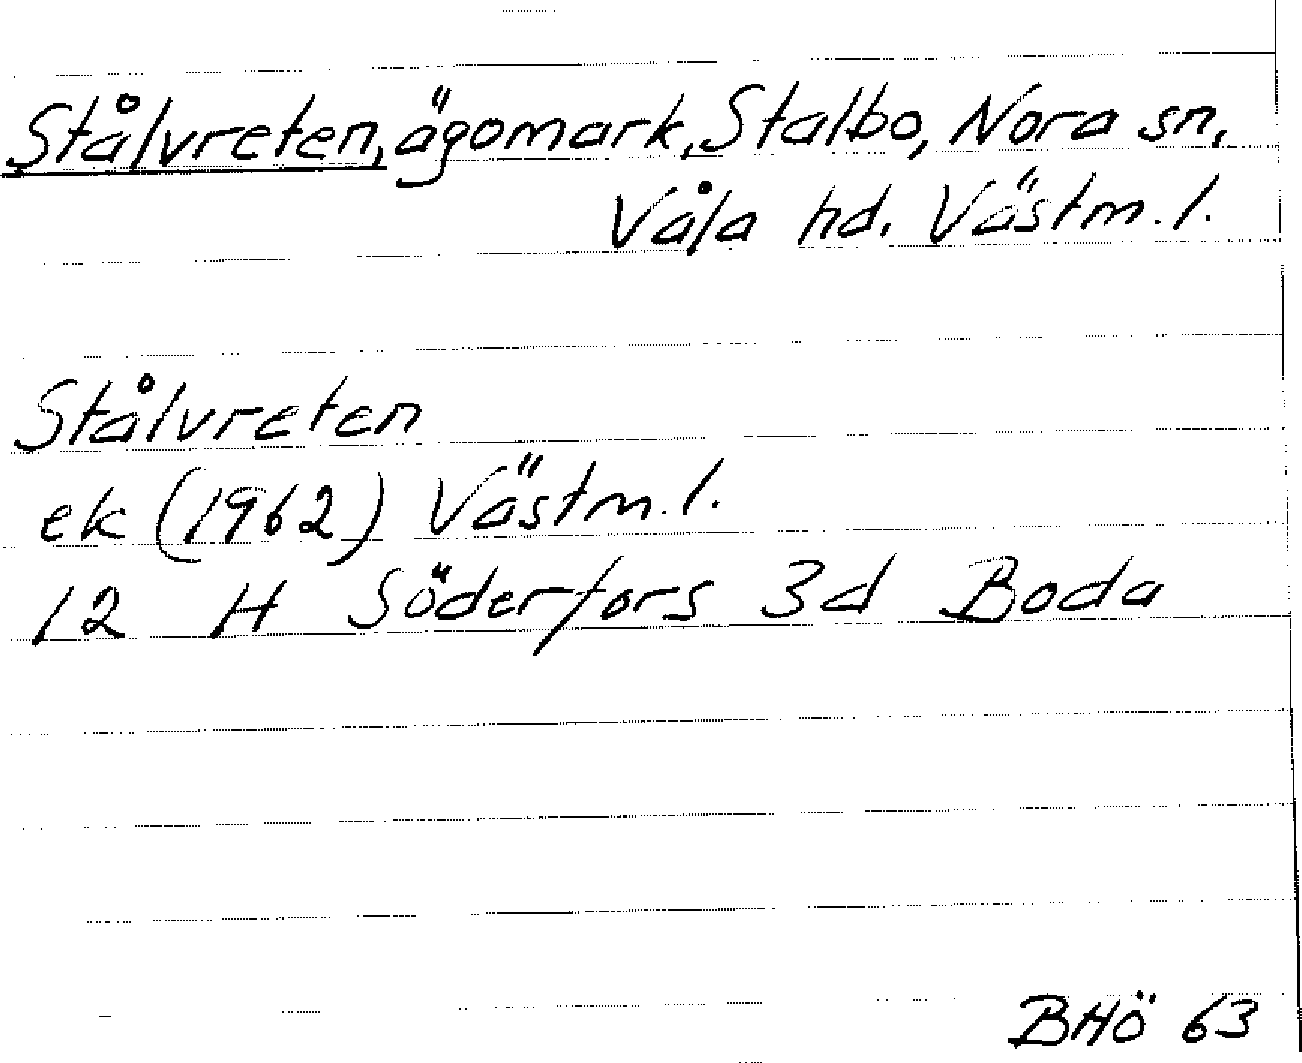 Stålvreten, ägomark, Stalbo, Nora sn,
Våla hd. Västm. l.
Stålvreten
ek (1962) Västm. l.
12 H Söderfors 3d Boda
BHÖ 63